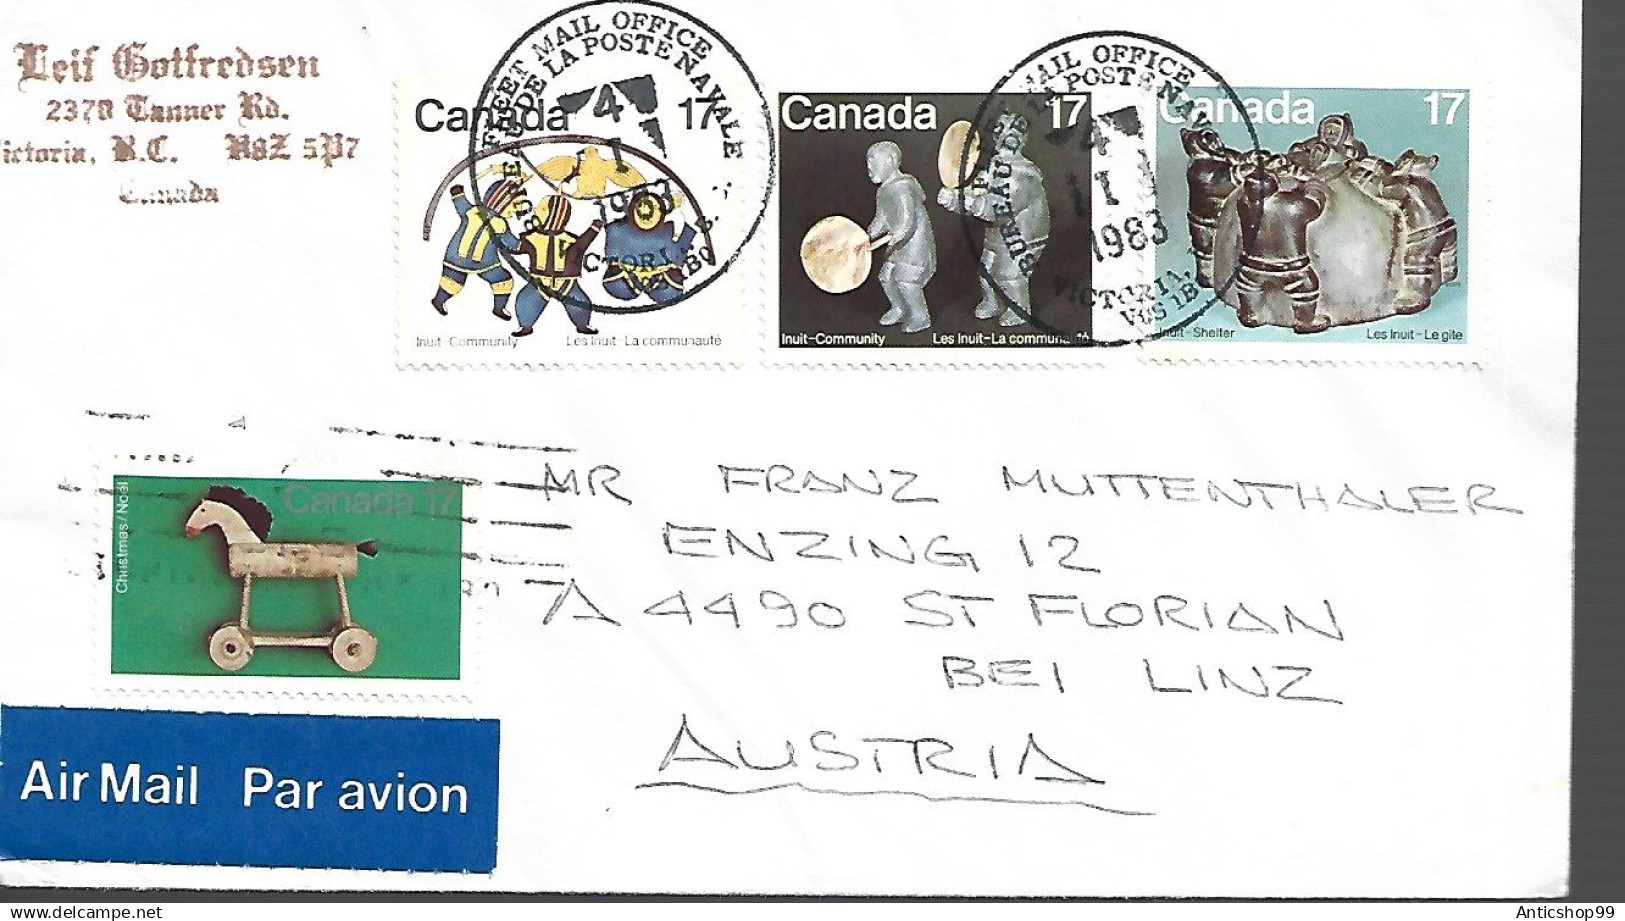 Leif Gotfredsen
2370 Tanner Rd.
Victoria, B.C. V8Z 5P7
Canada
FLEET MAIL OFFICE
BUREAU DE LA POSTE NAVALE
4
I
1983
VICTORIA, B.C.
V0S 1B0
FLEET MAIL OFFICE
BUREAU DE LA POSTE NAVALE
4
I
1983
VICTORIA,
V0S 1B0
Canada 17
Inuit-Community Les Inuit-La communauté
Canada 17
Inuit-Community Les Inuit-La communauté
Canada 17
Inuit-Shelter Les Inuit-Le gîte
Canada 17
Christmas/Noël
MR FRANZ MUTTENTHALER
ENZING 12
A 4490 ST FLORIAN
BEI LINZ
AUSTRIA
Air Mail Par avion
Anticshop99